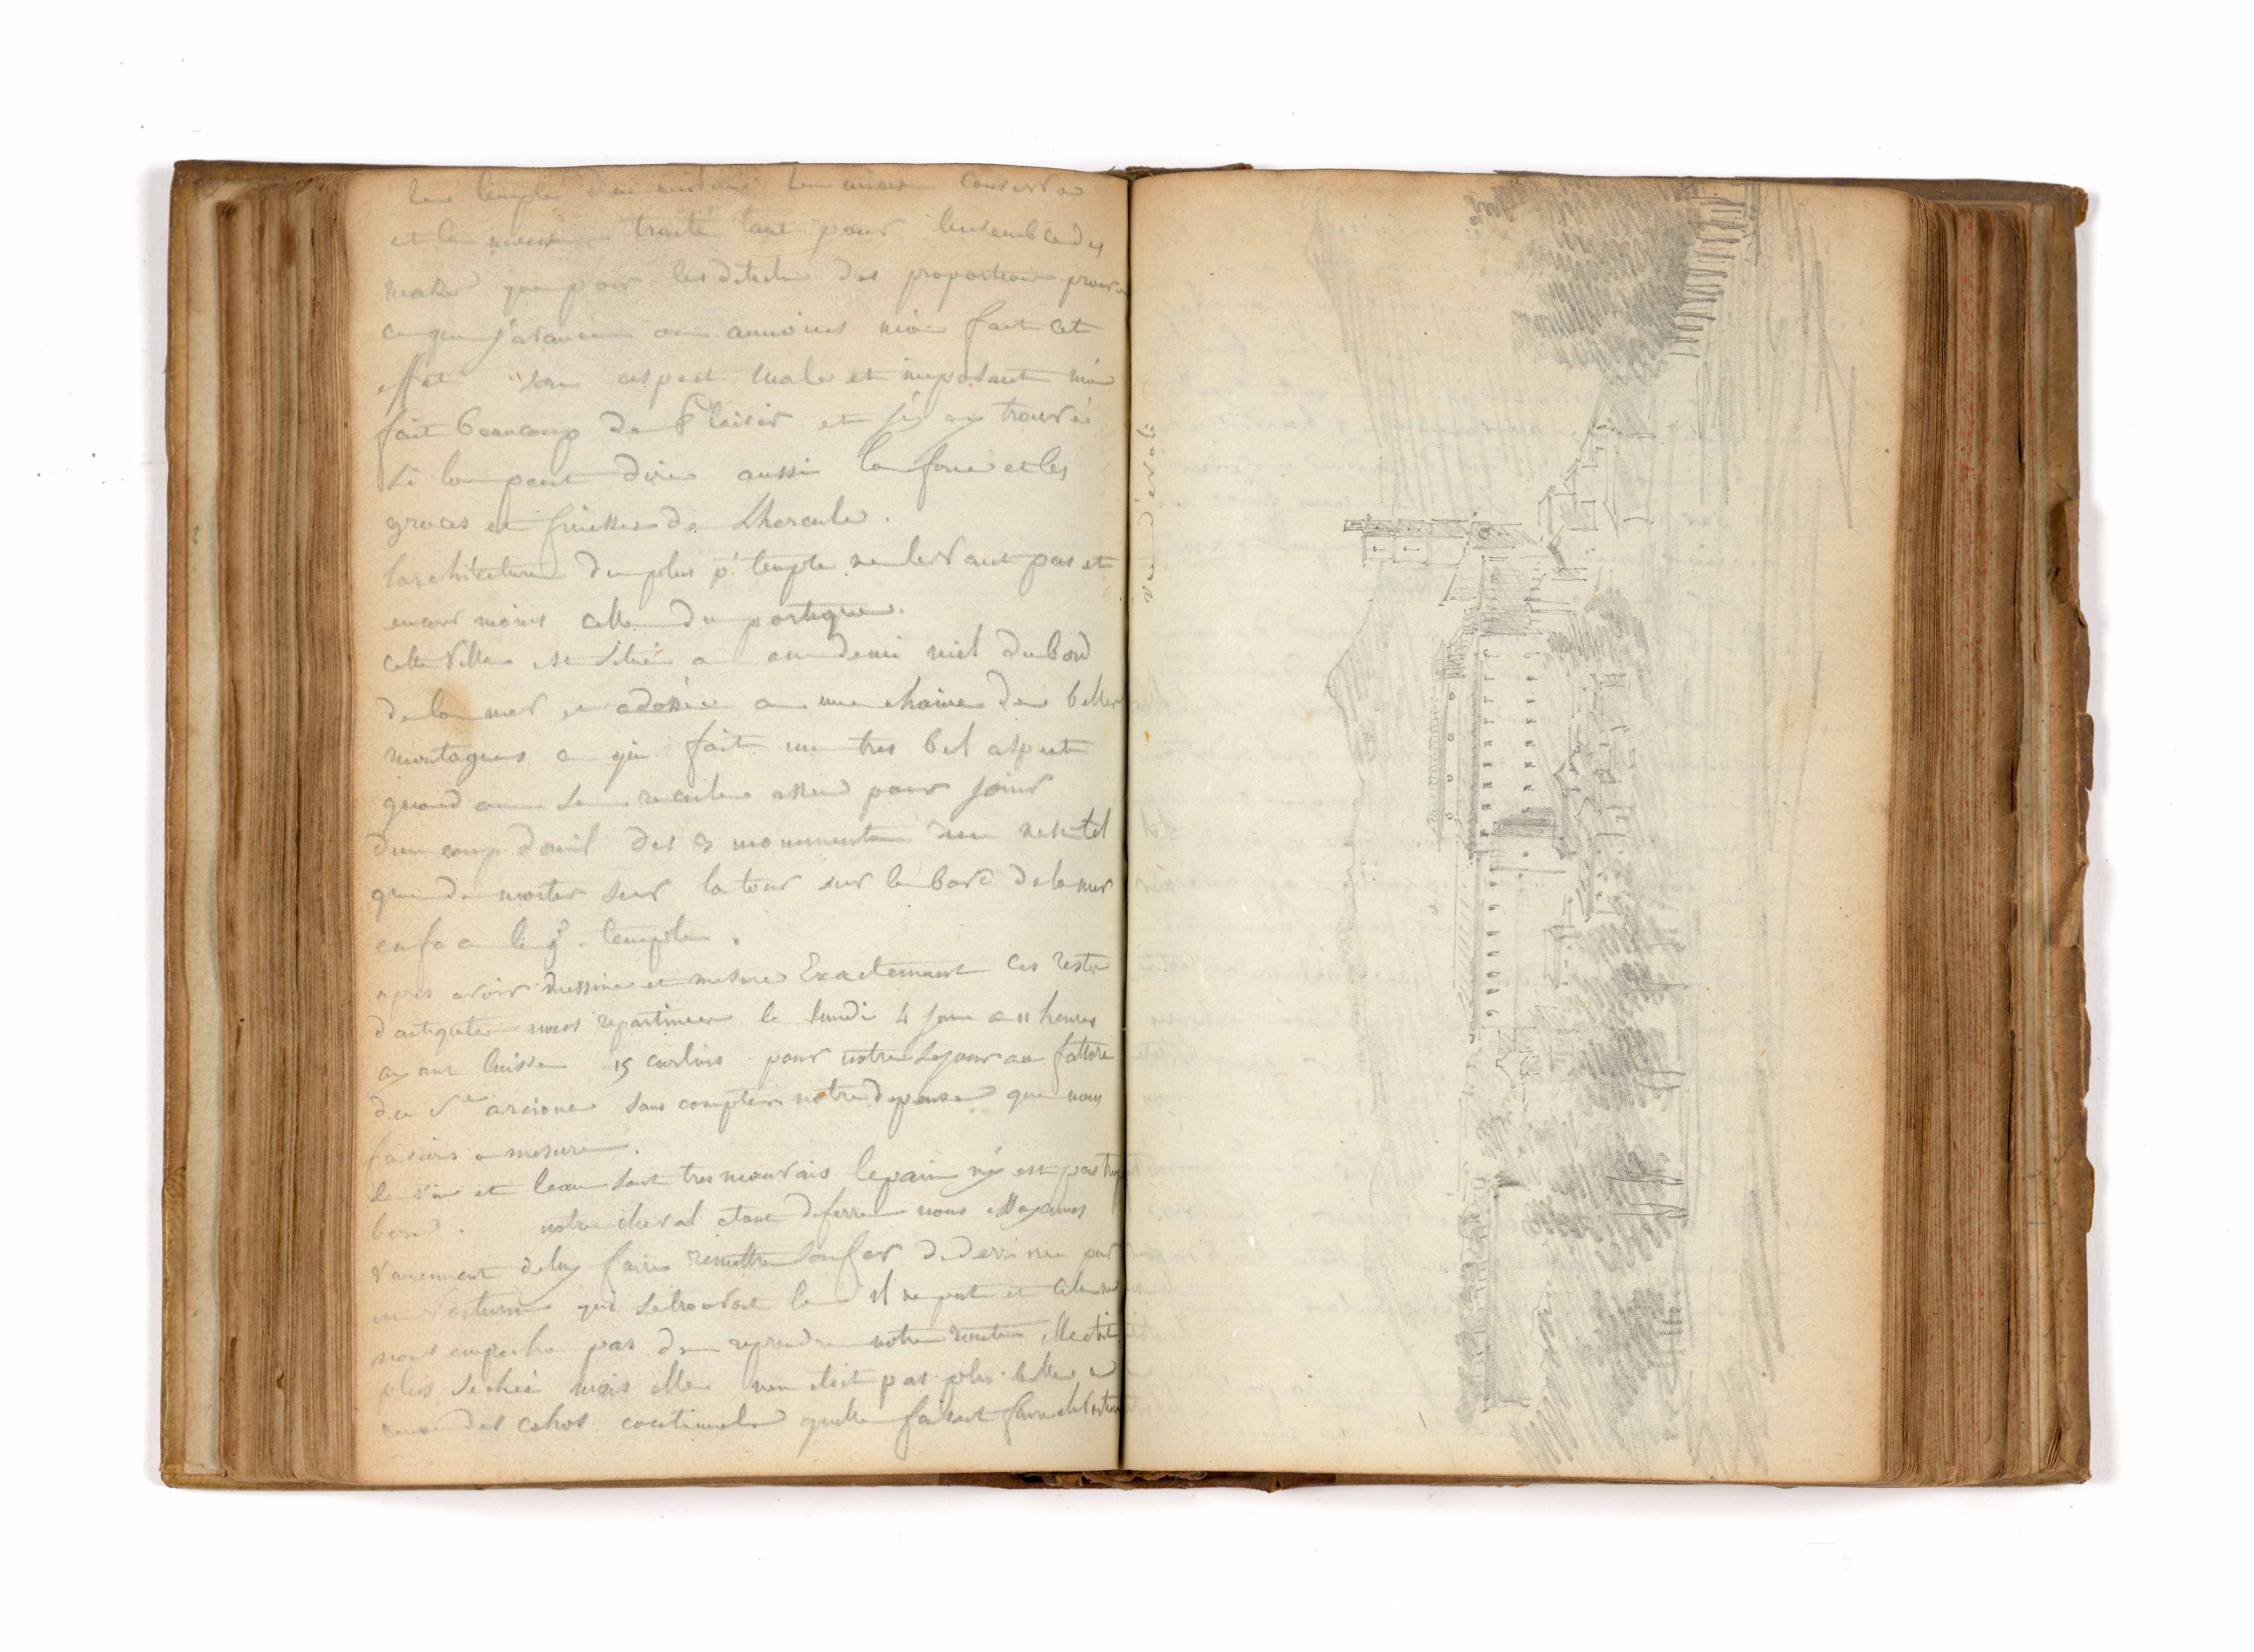 le temple du milieu le mieux conservé
et le mieux traité tant pour lensemble des
que pour les details des proportions
ce que j'avance ou aumoins m'a fait cet
effet son aspect male et imposant m'a
fait beaucoup de Plaisir et j'y ay trouvé
si lon peut dire aussi la force et les
graces et finesses de Lhercule.
larchitecture du plus pt temple ne le vaut pas et
encor moins celle du portique.
cette Ville est située a un demi mil du bord
de la mer et adossée a une chaine de belles
montagnes ce qui fait un tres bel aspect
quand on se recule assez pour jouir
dun coup d'oeuil des 3 monuments rien nest tel
que de monter sur la tour sur le bord de la mer
en face le g. temple.
apres avoir dessiné et mesuré Exactement ces restes
dantiquités nous repartimes le lundi 4 juin a 11 heures
ayant laissé 15 carlins pour notre sejour au fattore
du arcione sans compter notre depense que nous
faisions a mesure.
le vin et leau sont tres mauvais le pain n'y est pas trop
bon. notre cheval etant deferré nous essayames
vainement de luy faire remettre son fer de derriere par
un voiturin qui se trouvoit la il ne put et cela ne
nous empecha pas de reprendre notre route elle etoit
plus sechée mais elle nen etoit pas plus belle a
cause des cahos continuels quelle faisoit faire
vue d'evoli